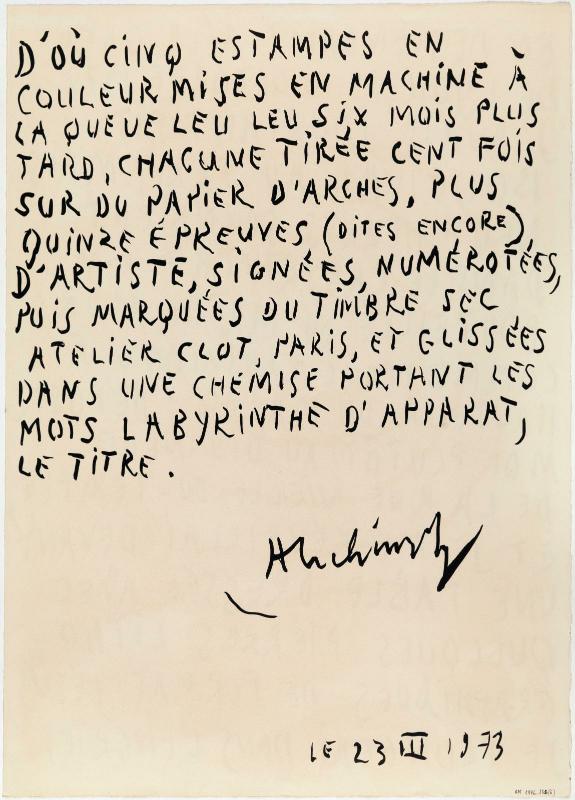 D'OÙ CINQ ESTAMPES EN
COULEUR MISES EN MACHINE À
LA QUEUE LEU LEU SIX MOIS PLUS
TARD, CHACUNE TIRÉE CENT FOIS
SUR DU PAPIER D'ARCHES, PLUS
QUINZE ÉPREUVES (DITES ENCORE)
D'ARTISTE, SIGNÉES, NUMÉROTÉES,
PUIS MARQUÉES DU TIMBRE SEC
ATELIER CLOT, PARIS, ET GLISSÉES
DANS UNE CHEMISE PORTANT LES
MOTS LABYRINTHE D'APPARAT,
LE TITRE.
Alechinsky
LE 23 III 1973